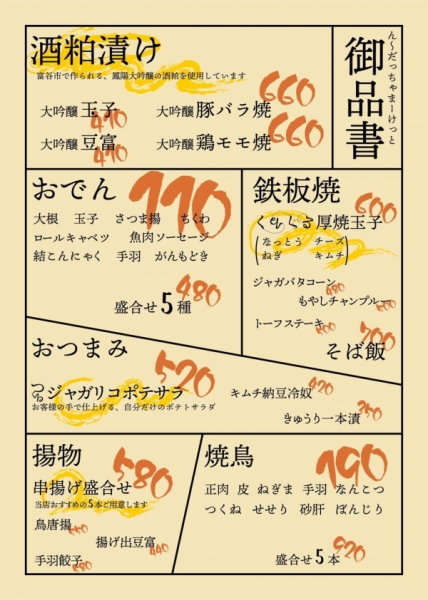 御品書
ん〜だっちゃまーけっと
酒粕漬け
富谷市で作られる、鳳陽大吟醸の酒粕を使用しています
大吟醸 玉子 410
大吟醸 豚バラ焼 660
大吟醸 豆富 410
大吟醸 鶏モモ焼 660
おでん 110
大根 玉子 さつま揚 ちくわ
ロールキャベツ 魚肉ソーセージ
結こんにゃく 手羽 がんもどき
盛合せ5種 480
鉄板焼
ぐりぐる厚焼玉子 600
(なっとう チーズ
ねぎ キムチ)
ジャガバタコーン 480
もやしチャンプルー 500
トーフステーキ 500
そば飯 700
おつまみ
ジャガリコポテサラ 520
お客様の手で仕上げる、自分だけのポテトサラダ
キムチ納豆冷奴 420
きゅうり一本漬 350
揚物
串揚げ盛合せ 580
当店おすすめの5本ご用意します
鳥唐揚 550
揚げ出豆富 440
手羽餃子 580
焼鳥 190
正肉 皮 ねぎま 手羽 なんこつ
つくね せせり 砂肝 ぼんじり
盛合せ5本 920